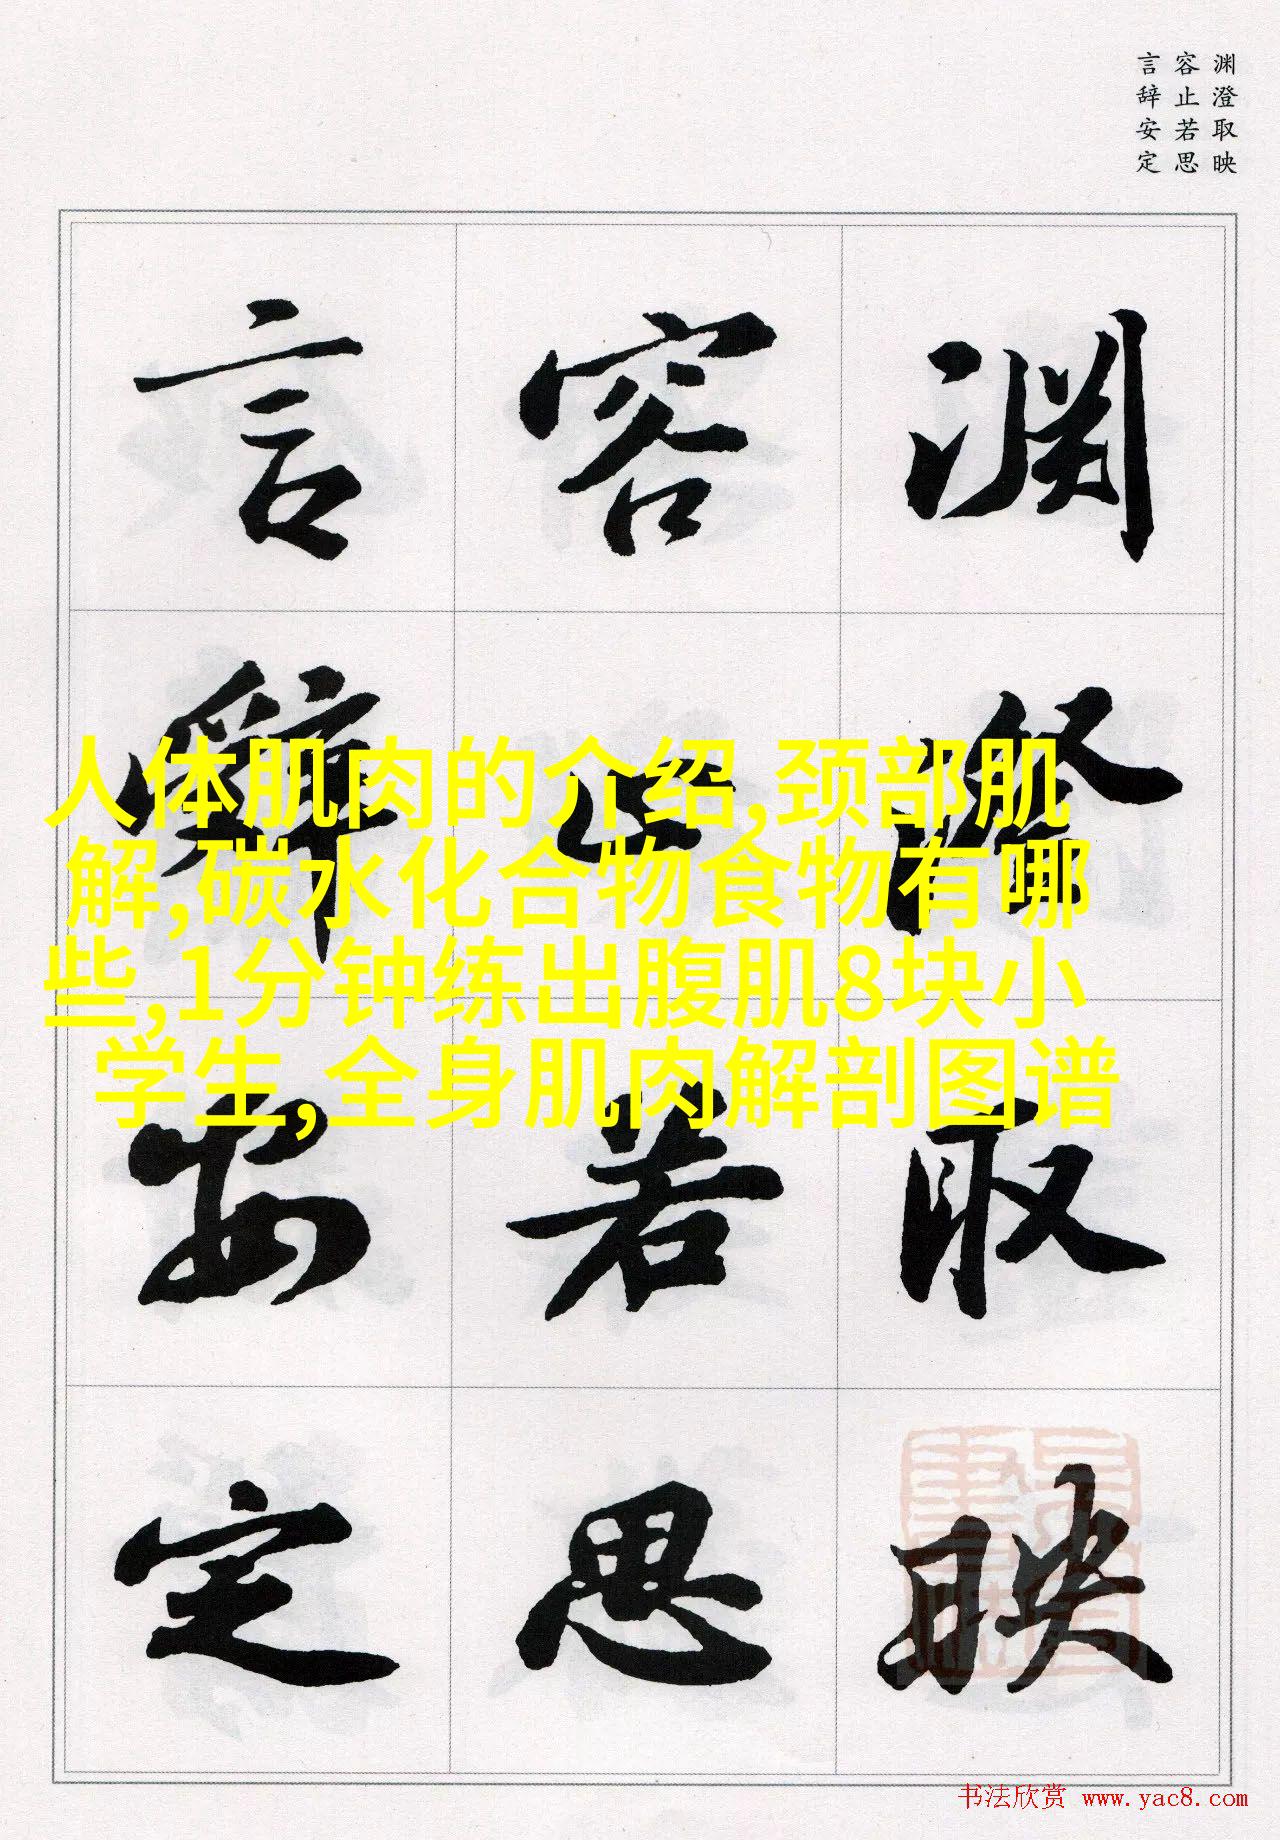 渊澄取映
容止若思
言辞安定
渊澄取映
容止若思
言辭安定
人体肌肉的介绍,颈部肌
解,碳水化合物食物有哪
些,1分钟练出腹肌8块小
学生,全身肌肉解剖图谱
书法欣赏 www.yac8.com